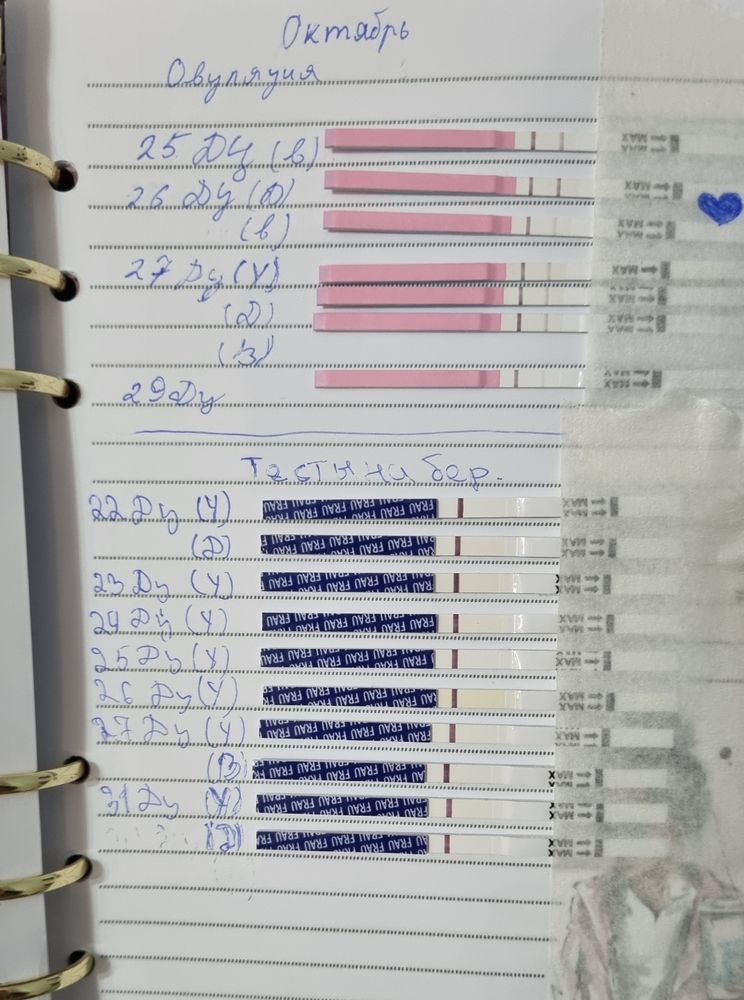 Октябрь
Овуляция
25 ДЦ (в)
MAX
26 Ду (Д)
MAX
(в)
MAX
27 Ду (У)
MAX
MAX
(Д)
MAX
(в)
29 Ду
MAX
Тесты на бер.
22 Ду (У) FRAU FRAU FRAU FRAU MAX
(Д) FRAU FRAU FRAU FRAU MAX
23 Ду (У) FRAU FRAU FRAU FRAU MAX
24 Ду (У) FRAU FRAU FRAU FRAU MAX
25 Ду (У) FRAU FRAU FRAU FRAU MAX
26 Ду (У) FRAU FRAU FRAU FRAU MAX
27 Ду (У) FRAU FRAU FRAU FRAU MAX
(В) FRAU FRAU FRAU FRAU MAX
31 Ду (У) FRAU FRAU FRAU FRAU MAX
(Д) FRAU FRAU FRAU FRAU MAX